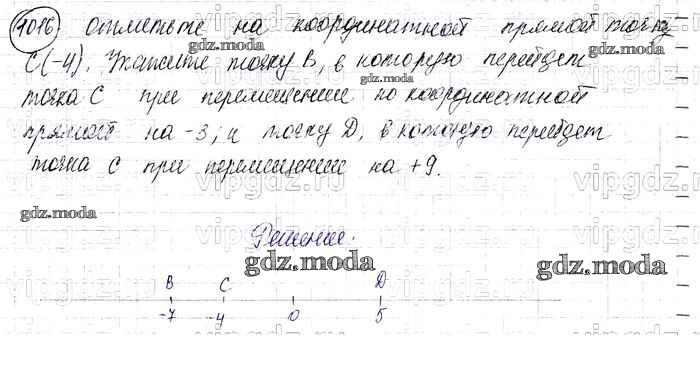 1016 отметьте на координатной прямой точку
C(-4). Укажите точку В, в которую перейдет
точка С при перемещении по координатной
прямой на -3; и точку D, в которую перейдет
точка С при перемещении на +9.
Решение.
B C D
-7 -4 0 5
gdz.moda
gdz.moda
gdz.moda
gdz.moda
gdz.moda
gdz.moda
gdz.moda
vipgdz.ru
vipgdz.ru
vipgdz.ru